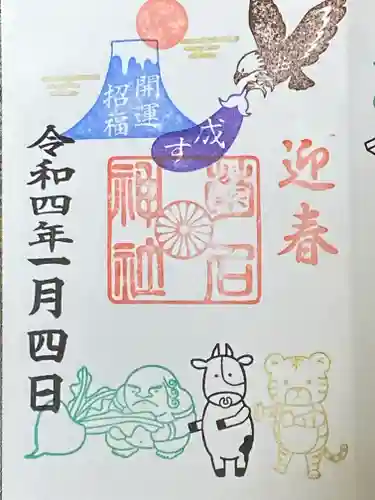 開運
招福
成す
迎春
神社
令和四年一月四日